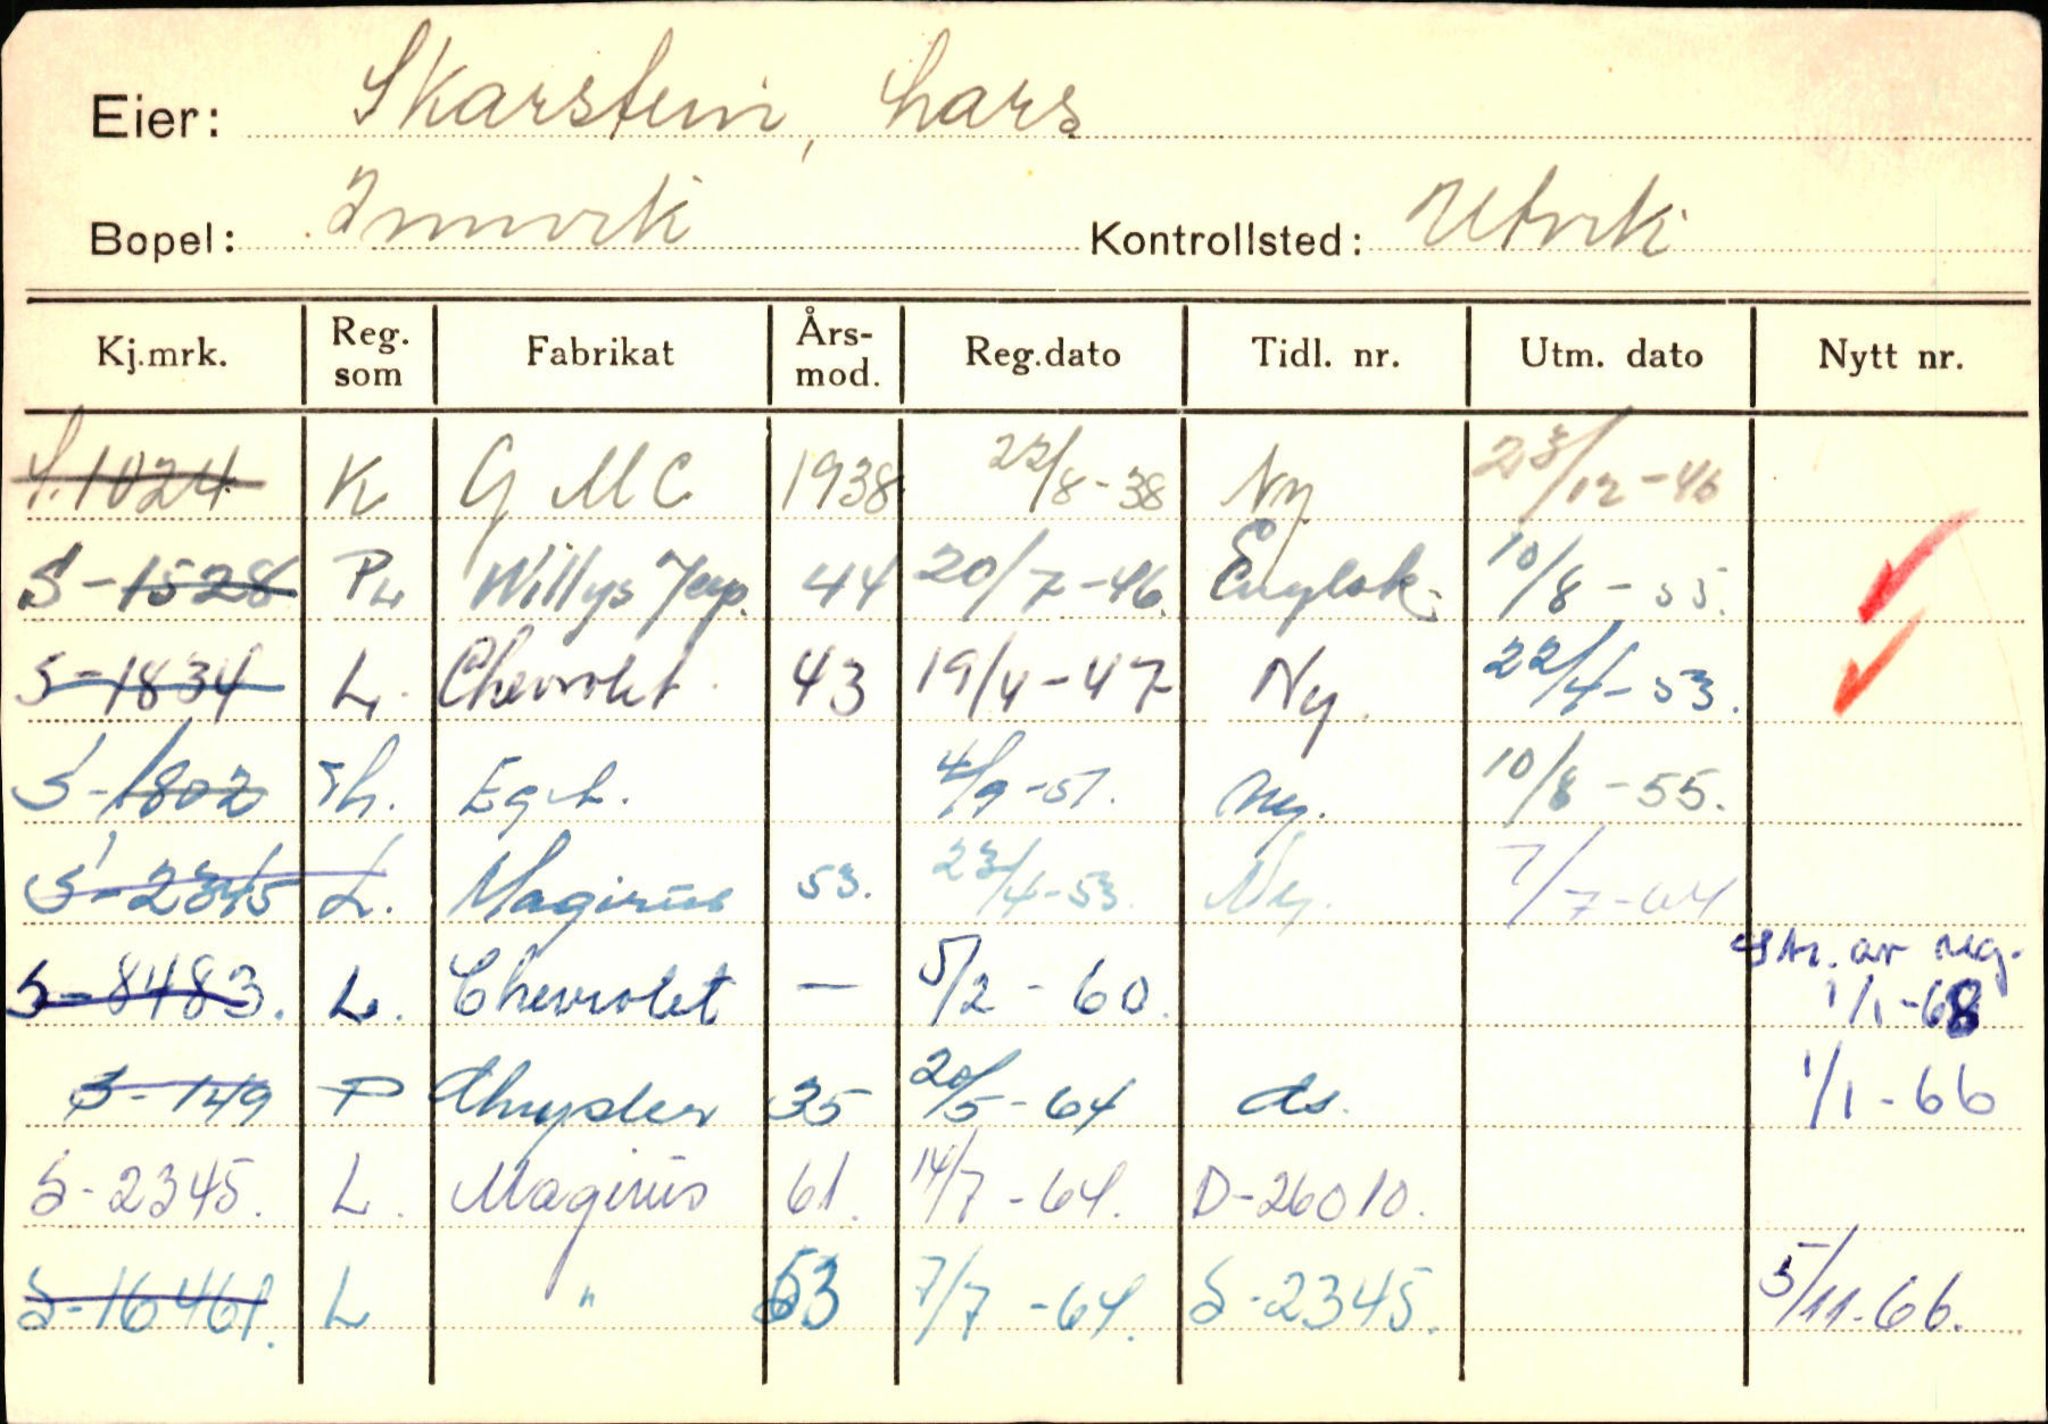 Eier: Skarstein, Lars
Bopel: Innvik Kontrollsted: Utvik
Kj.mrk. Reg. som Fabrikat Års-mod. Reg.dato Tidl. nr. Utm. dato Nytt nr.
S.1024 K G M C 1938 22/8-38 Ny 23/12-46
S-1528 PL Willys Jeep. 44 20/7-46. Engelsk. 10/8-55.
S-1834 L. Chevrolet. 43 19/4-47 Ny. 22/4-53.
S-1802 Th. Eget. 4/9-51. Ny. 10/8-55.
S-2345 L. Magirus 53. 23/4-53. Ny. 7/7-64
S-8483. L. Chevrolet — 5/2-60. Str. av reg. 1/1-68
S-149 P Chrysler 35 20/5-64 ds. 1/1-66
S-2345. L. Magirus 61. 14/7-64. D-26010.
S-16461. L " 53 7/7-64. S-2345. 5/11-66.